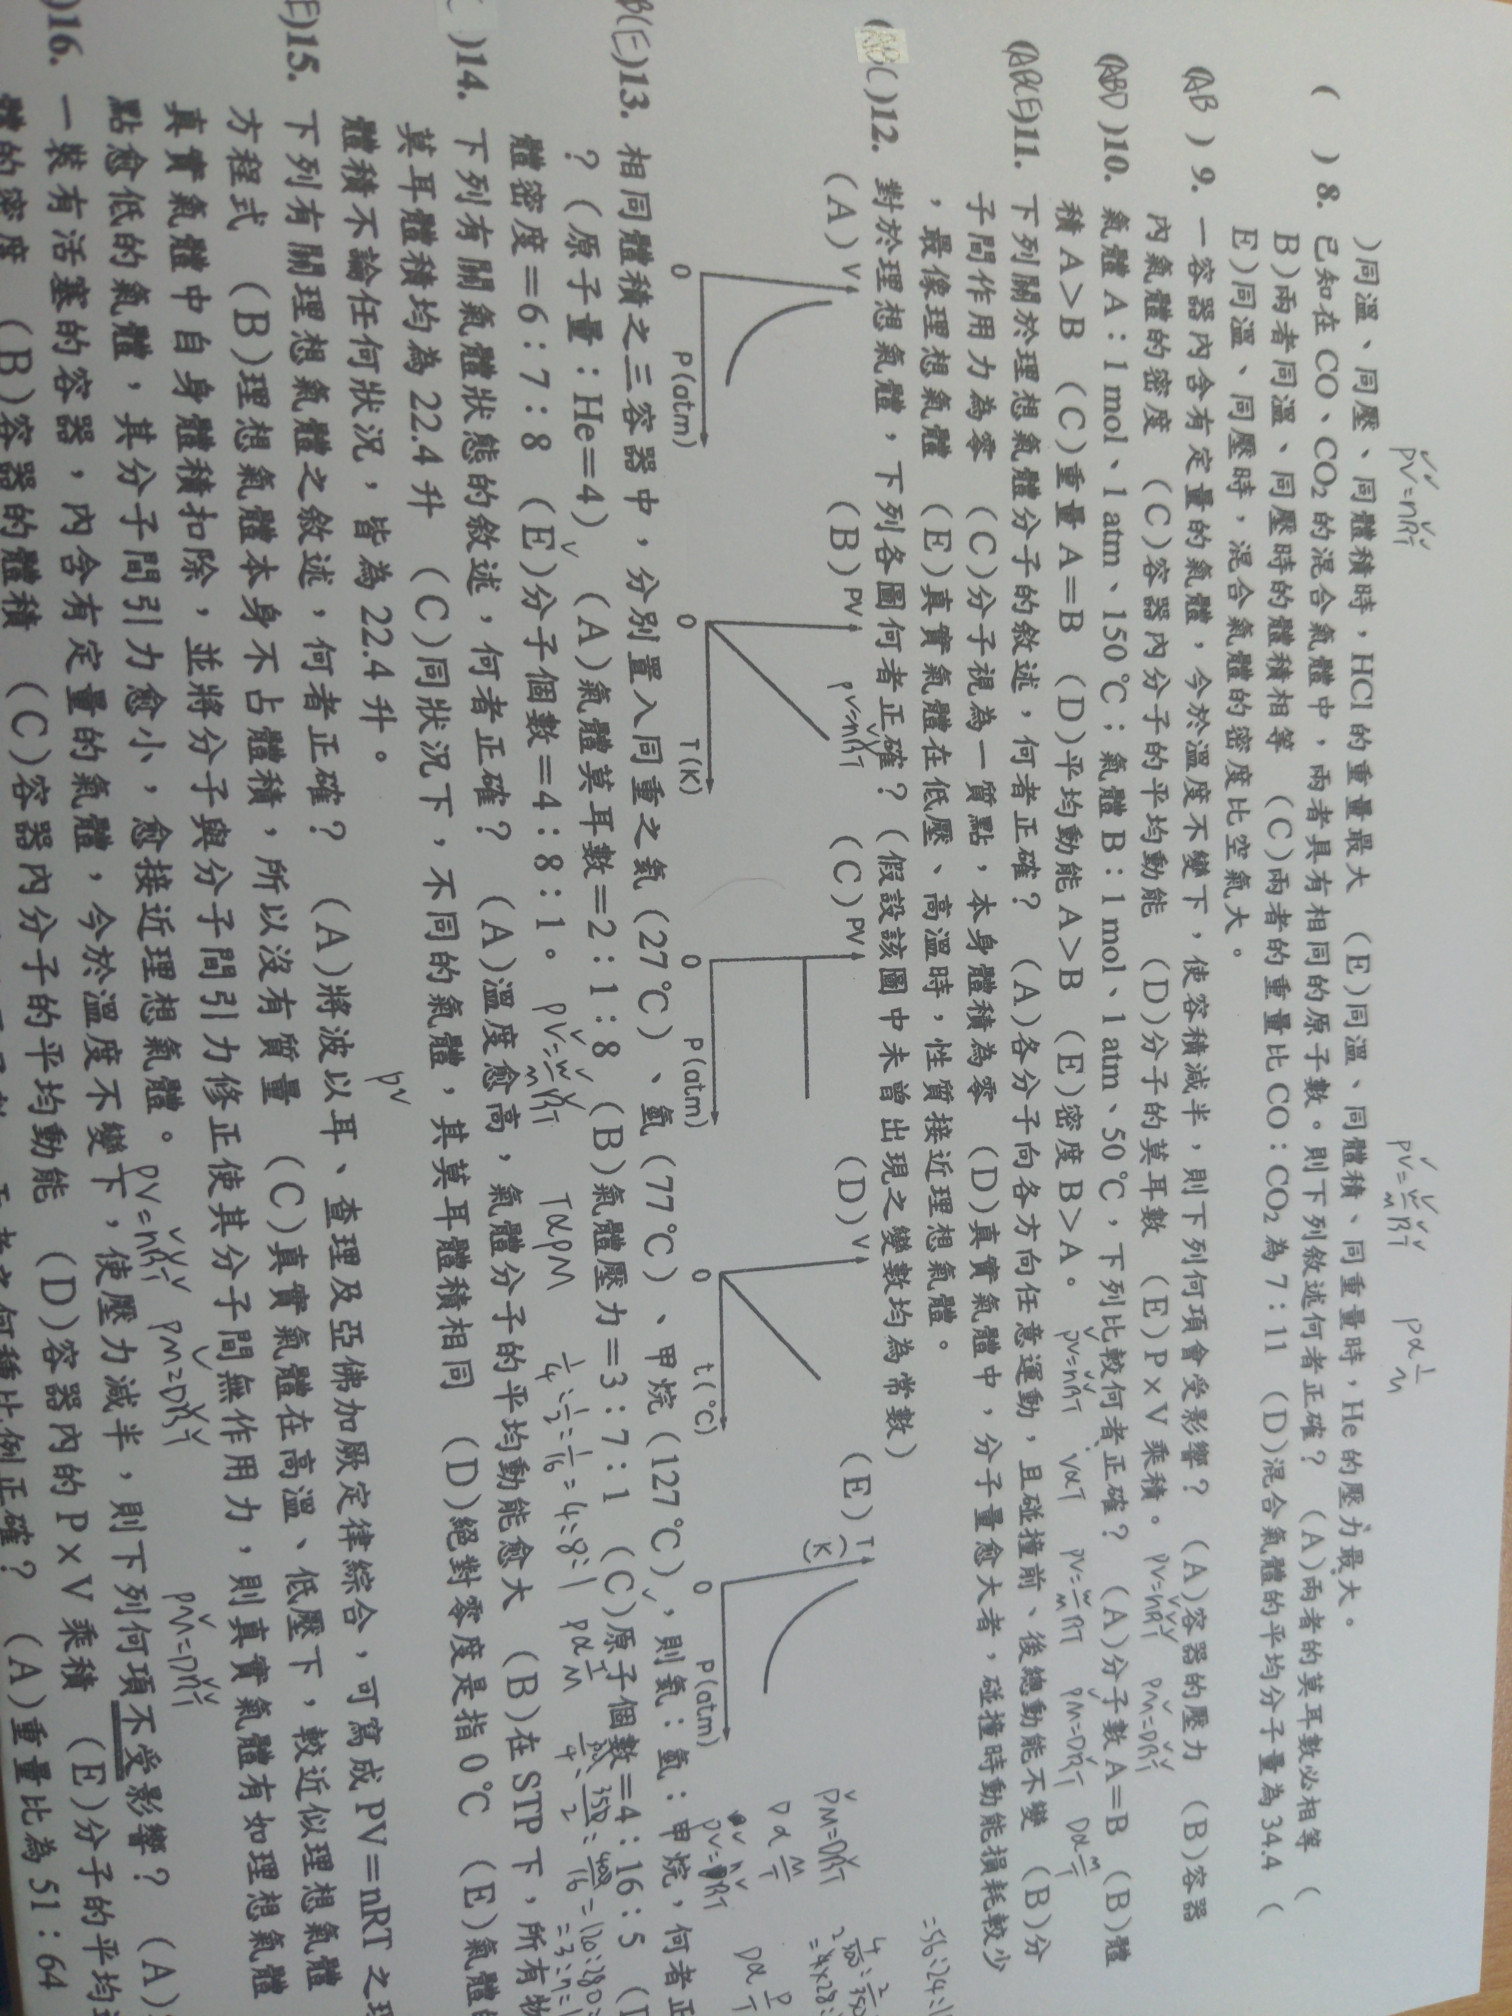 )同溫、同壓、同體積時，HCl的重量最大　(E)同溫、同體積、同重量時，He的壓力最大。
(　　) 8. 已知在CO、CO₂的混合氣體中，兩者具有相同的原子數。則下列敘述何者正確？ (A)兩者的莫耳數必相等 (
B)兩者同溫、同壓時的體積相等 (C)兩者的重量比CO：CO₂為7：11 (D)混合氣體的平均分子量為34.4 (
E)同溫、同壓時，混合氣體的密度比空氣大。
(AB ) 9. 一容器內含有定量的氣體，今於溫度不變下，使容積減半，則下列何項會受影響？ (A)容器的壓力 (B)容器
內氣體的密度 (C)容器內分子的平均動能 (D)分子的莫耳數 (E)P×V乘積。
(ABD )10. 氣體A：1 mol、1 atm、150℃；氣體B：1 mol、1 atm、50℃，下列比較何者正確？ (A)分子數A＝B (B)體
積A＞B (C)重量A＝B (D)平均動能A＞B (E)密度B＞A。
(ABCE)11. 下列關於理想氣體分子的敘述，何者正確？ (A)各分子向各方向任意運動，且碰撞前、後總動能不變 (B)分
子間作用力為零 (C)分子視為一質點，本身體積為零 (D)真實氣體中，分子量愈大者，碰撞時動能損耗較少
，最像理想氣體 (E)真實氣體在低壓、高溫時，性質接近理想氣體。
12. 對於理想氣體，下列各圖何者正確？(假設該圖中未曾出現之變數均為常數)
(A) V 0 P(atm)
(B) PV 0 T(K)
(C) PV 0 P(atm)
(D) V 0 t(℃)
(E) T(K) 0 P(atm)
)13. 相同體積之三容器中，分別置入同重之氦(27℃)、氫(77℃)、甲烷(127℃)，則氦：氫：甲烷，何者正
？(原子量：He＝4) (A)氣體莫耳數＝2：1：8 (B)氣體壓力＝3：7：1 (C)原子個數＝4：16：5
體密度＝6：7：8 (E)分子個數＝4：8：1。
)14. 下列有關氣體狀態的敘述，何者正確？ (A)溫度愈高，氣體分子的平均動能愈大 (B)在STP下，所有物
莫耳體積均為22.4升 (C)同狀況下，不同的氣體，其莫耳體積相同 (D)絕對零度是指0℃ (E)氣體
體積不論任何狀況，皆為22.4升。
E)15. 下列有關理想氣體之敘述，何者正確？ (A)將波以耳、查理及亞佛加厥定律綜合，可寫成PV＝nRT之理
方程式 (B)理想氣體本身不占體積，所以沒有質量 (C)真實氣體在高溫、低壓下，較近似理想氣體
真實氣體中自身體積扣除，並將分子與分子間引力修正使其分子間無作用力，則真實氣體有如理想氣體
點愈低的氣體，其分子間引力愈小，愈接近理想氣體。
)16. 一裝有活塞的容器，內含有定量的氣體，今於溫度不變下，使壓力減半，則下列何項不受影響？ (A)
體的密度 (B)容器的體積 (C)容器內分子的平均動能 (D)容器內的P×V乘積 (E)分子的平均
何種比例正確？ (A)重量比為51：64
PV=nRT
PM=DRT